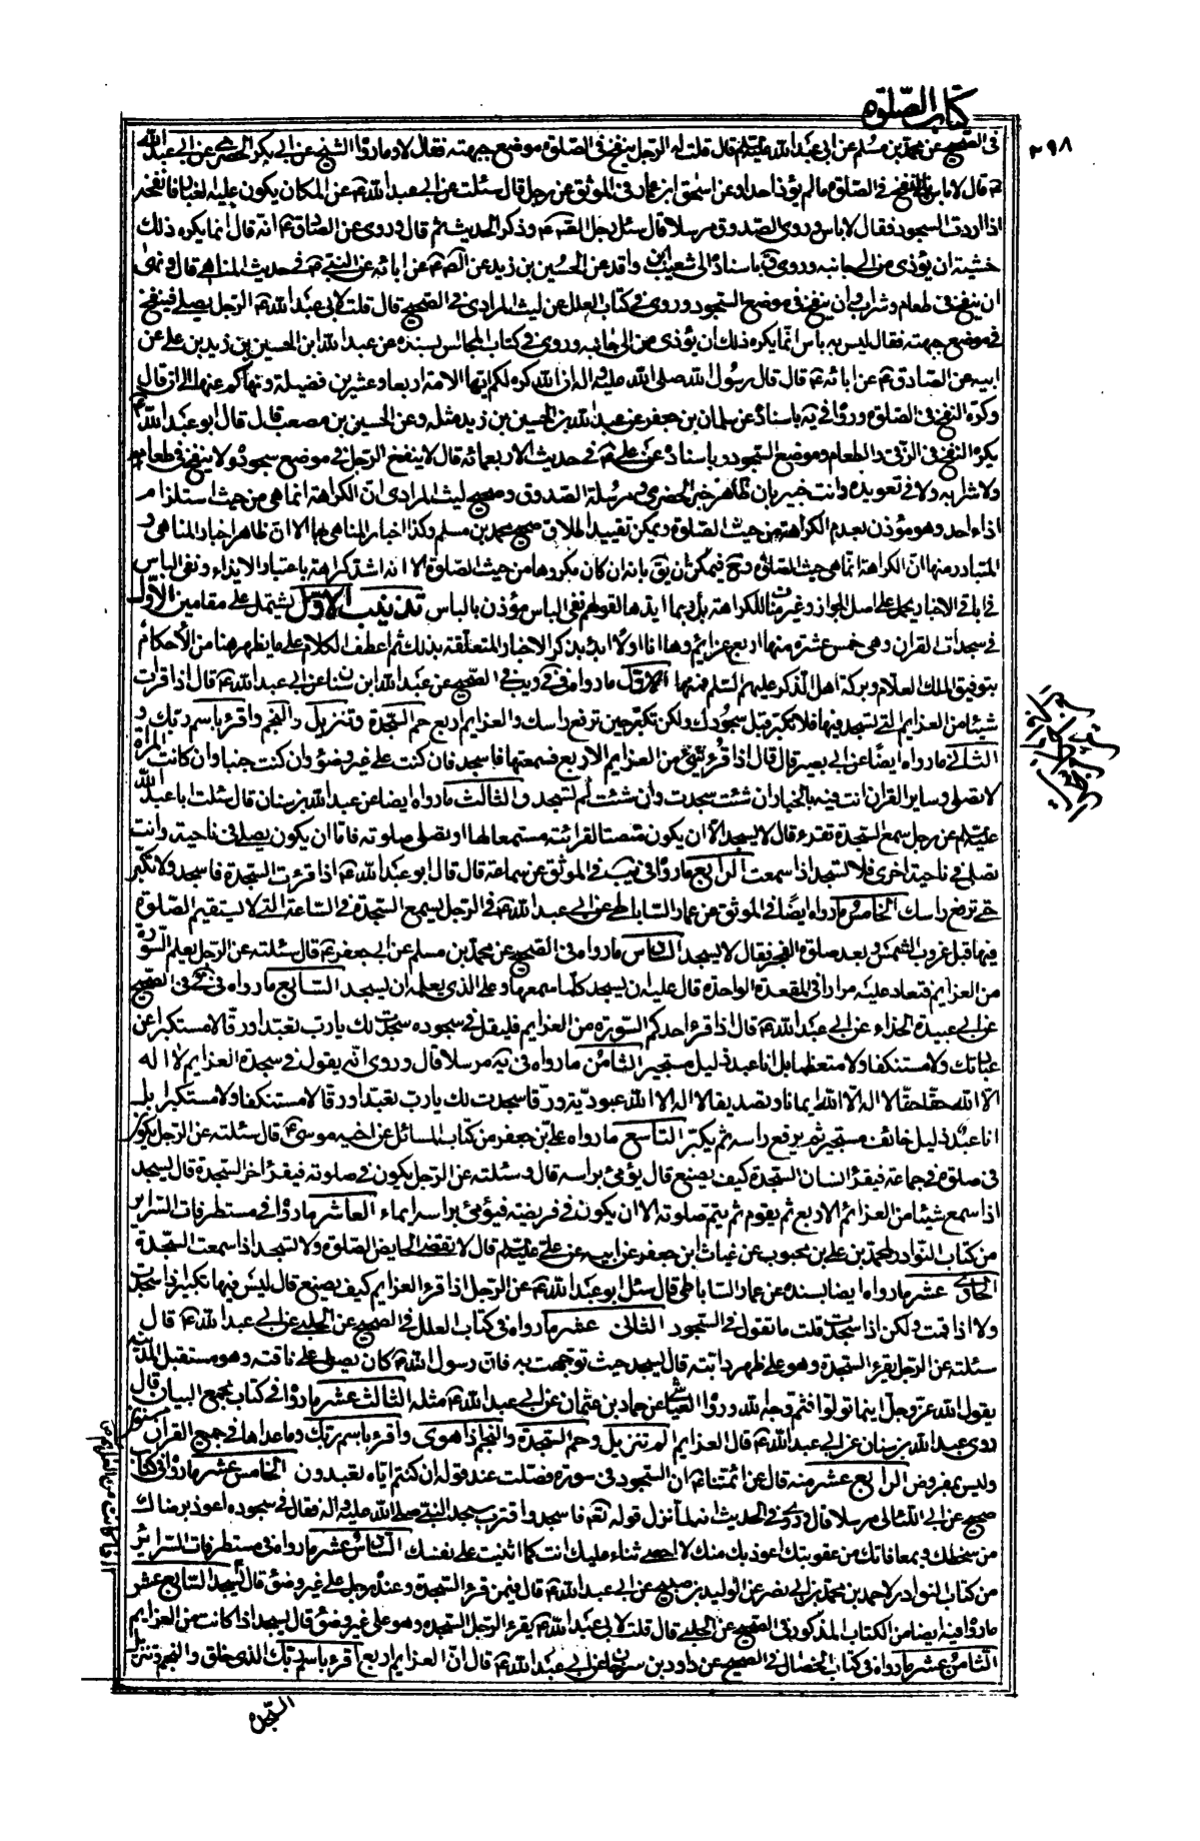 كتاب الصلوة
٢٩٨
في الصحيح عن محمد بن مسلم عن ابي عبد الله عليه السلم قال قلت له الرجل ينفخ في الصلوة موضع جبهته فقال لا وما رواه الشيخ عن ابي بكر الحضرمي عن ابي عبد الله
ع قال لا باس بالنفخ في الصلوة ما لم يؤذ احدا وعن اسحق ابن عمار في الموثق عن رجل قال سئلت عن ابي عبد الله ع عن المكان يكون عليه الغبار فانفخه
اذا اردت السجود فقال لا باس وروى الصدوق مرسلا قال سئل رجل الصادق ع وذكر الحديث ثم قال وروى عن الصادق ع انه قال انما يكره ذلك
خشية ان يؤذى من الى جانبه وروى ق باسناده الى شعيب ابن واقد عن الحسين بن زيد عن الصم ع عن ابائه عن النبي ص في حديث المناهي قال ونهى
ان ينفخ في طعام وشراب وان ينفخ في موضع السجود وروى في كتاب العلل عن ليث المرادي في الصحيح قال قلت لابي عبد الله ع الرجل يصلي فينفخ
في موضع جبهته فقال ليس به باس انما يكره ذلك ان يؤذى من الى جانبه وروى في كتاب المجالس بسنده عن عبد الله ابن الحسين بن زيد بن علي عن
ابيه عن الصادق ع عن ابائه ع قال قال رسول الله صلى الله عليه واله ان الله كره لكم ايتها الامة اربعا وعشرين فضيلة ونهاكم عنها الى ان قال
وكره النفخ في الصلوة ورواه في يه باسناده عن سلمان بن جعفر عن عبد الله بن الحسين بن زيد مثله وعن الحسين بن مصعب قال قال ابو عبد الله ع
يكره النفخ في الرقى والطعام وموضع السجود وباسناده عن علي ع في حديث الاربعمائه قال لا ينفخ الرجل في موضع سجوده ولا ينفخ في طعامه
ولا شرابه ولا في تعويذه وانت خبير بان ظاهر خبر الحضرمي ومرسلة الصدوق وصحيح ليث المرادي ان الكراهة انما هي من حيث استلزام
اذاء احد وهو مؤذن بعدم الكراهة من حيث الصلوة ويمكن تقييد اطلاق صحيح محمد بن مسلم وكذا اخبار المناهي بها الا ان ظاهر اخبار المناهي و
المتبادر منها ان الكراهة انما هي حيث الصلوة وح فيمكن ان يق بانه ان كان مكروها من حيث الصلوة الا انه اشد كراهة باعتبار الايذاء ونفي الباس
في باقي الاخبار يحمل على اصل الجواز وغير مناف للكراهة بل ربما ايدها لقولهم نفي الباس مؤذن بالباس تذنيب الاول يشتمل على مقامين الاول
في سجدات القران وهي خمس عشرة منها اربع عزائم وها انا اولا ابدء بذكر الاخبار المتعلقة بذلك ثم اعطف الكلام على ما يظهر منها من الاحكام
بتوفيق الملك العلام وبركة اهل الذكر عليهم السلم فمنها الاول ما رواه في في ويب في الصحيح عن عبد الله ابن سنان عن ابي عبد الله ع قال اذا قرات
شيئا من العزايم التي يسجد فيها فلا تكبر قبل سجودك ولكن تكبر حين ترفع راسك والعزايم اربع حم السجدة وتنزيل والنجم واقرء باسم ربك و
الثاني ما رواه ايضا عن ابي بصير قال قال اذا قرء شئ من العزايم الاربع فسمعتها فاسجد وان كنت على غير وضوء وان كنت جنبا وان كانت المراة
لا تصلي وساير القران انت فيه بالخيار ان شئت سجدت وان شئت لم تسجد والثالث ما رواه ايضا عن عبد الله بن سنان قال سئلت ابا عبد الله
عليه السلم عن رجل سمع السجدة تقرء قال لا يسجد الا ان يكون منصتا لقرائته مستمعا لها او يصلي بصلوته فاما ان يكون يصلي في ناحية وانت
تصلي في ناحية اخرى فلا تسجد اذا سمعت الرابع ما رواه في يب في الموثق عن سماعة قال قال ابو عبد الله ع اذا قرءت السجدة فاسجد ولا تكبر
حتى ترفع راسك الخامس ما رواه ايضا في الموثق عن عمار الساباطي عن ابي عبد الله ع في الرجل يسمع السجدة في الساعة التي لا يستقيم الصلوة
فيها قبل غروب الشمس وبعد صلوة الفجر فقال لا يسجد السادس ما رواه في الصحيح عن محمد بن مسلم عن ابي جعفر ع قال سئلته عن الرجل يعلم السورة
من العزايم فتعاد عليه مرارا في المقعدة الواحدة قال عليه ان يسجد كلما سمعها وعلى الذي يعلمه ان يسجد السابع ما رواه في في في الصحيح
عن ابي عبيدة الحذاء عن ابي عبد الله ع قال اذا قرء احدكم السورة من العزايم فليقل في سجوده سجدت لك يا رب تعبدا ورقا لا مستكبرا عن
عبادتك ولا مستنكفا ولا متعظما بل انا عبد ذليل مستجير الثامن ما رواه في يه مرسلا قال وروى انه يقول في سجدة العزايم لا اله
الا الله حقا حقا لا اله الا الله ايمانا وتصديقا لا اله الا الله عبودية ورقا سجدت لك يا رب تعبدا ورقا لا مستنكفا ولا مستكبرا بل
انا عبد ذليل خائف مستجير ثم يرفع راسه ثم يكبر التاسع ما رواه علي بن جعفر من كتاب المسائل عن اخيه موسى ع قال سئلته عن الرجل يكون
في صلوة في جماعة فيقرء انسان السجدة كيف يصنع قال يؤمئ براسه قال وسئلته عن الرجل يكون في صلوته فيقرء اخر السجدة قال يسجد
اذا سمع شيئا من العزائم الاربع ثم يقوم ثم يتم صلوته الا ان يكون في فريضته فيؤمئ براسه ايماء العاشر ما رواه في مستطرفات السراير
من كتاب النوادر لمحمد بن علي بن محبوب عن غياث ابن جعفر عن ابيه عن علي عليه السلم قال لا تقضي الحايض الصلوة ولا تسجد اذا سمعت السجدة
الحادي عشر ما رواه ايضا بسنده عن عمار الساباطي قال سئل ابو عبد الله ع عن الرجل اذا قرء العزايم كيف يصنع قال ليس فيها تكبير اذا سجدت
ولا اذا قمت ولكن اذا سجدت قلت ما تقول في السجود الثاني عشر ما رواه في كتاب العلل في الصحيح عن الحلبي عن ابي عبد الله ع قال
سئلته عن الرجل يقرء السجدة وهو على ظهر دابته قال يسجد حيث توجهت به فان رسول الله ص كان يصلي على ناقته وهو مستقبل المدينة
يقول الله عز وجل اينما تولوا فثم وجه الله ورواه العياشي عن حماد بن عثمان عن ابي عبد الله ع مثله الثالث عشر ما رواه في كتاب مجمع البيان قال
روى عبد الله بن سنان عن ابي عبد الله ع قال العزايم الم تنزيل وحم السجدة والنجم اذا هوى واقرء باسم ربك وما عداها في جميع القران مسنون
وليس بمفروض الرابع عشر منه قال عن ائمتنا ع ان السجود في سورة فصلت عند قوله ان كنتم اياه تعبدون الخامس عشر ما رواه في كتاب
عن ابي اللئالي مرسلا قال روى في الحديث انه لما نزل قوله تعم فاسجد واقترب سجد النبي صلى الله عليه واله فقال في سجوده اعوذ برضاك
من سخطك وبمعافاتك من عقوبتك اعوذ بك منك لا احصي ثناء عليك انت كما اثنيت على نفسك السادس عشر ما رواه في مستطرفات السراير
من كتاب النوادر لاحمد بن محمد بن ابي نصر عن الوليد بن صبيح عن ابي عبد الله ع قال فيمن قرء السجدة وعنده رجل على غير وضوء قال يسجد السابع عشر
ما رواه فيه ايضا من الكتاب المذكور في الصحيح عن الحلبي قال قلت لابي عبد الله ع يقرء الرجل السجده وهو على غير وضوء قال يسجد اذا كانت من العزايم
الثامن عشر ما رواه في كتاب الخصال في الصحيح عن داود بن سرحان عن ابي عبد الله ع قال ان العزايم اربع اقرء باسم ربك الذي خلق والنجم وتنزيل
السجدة